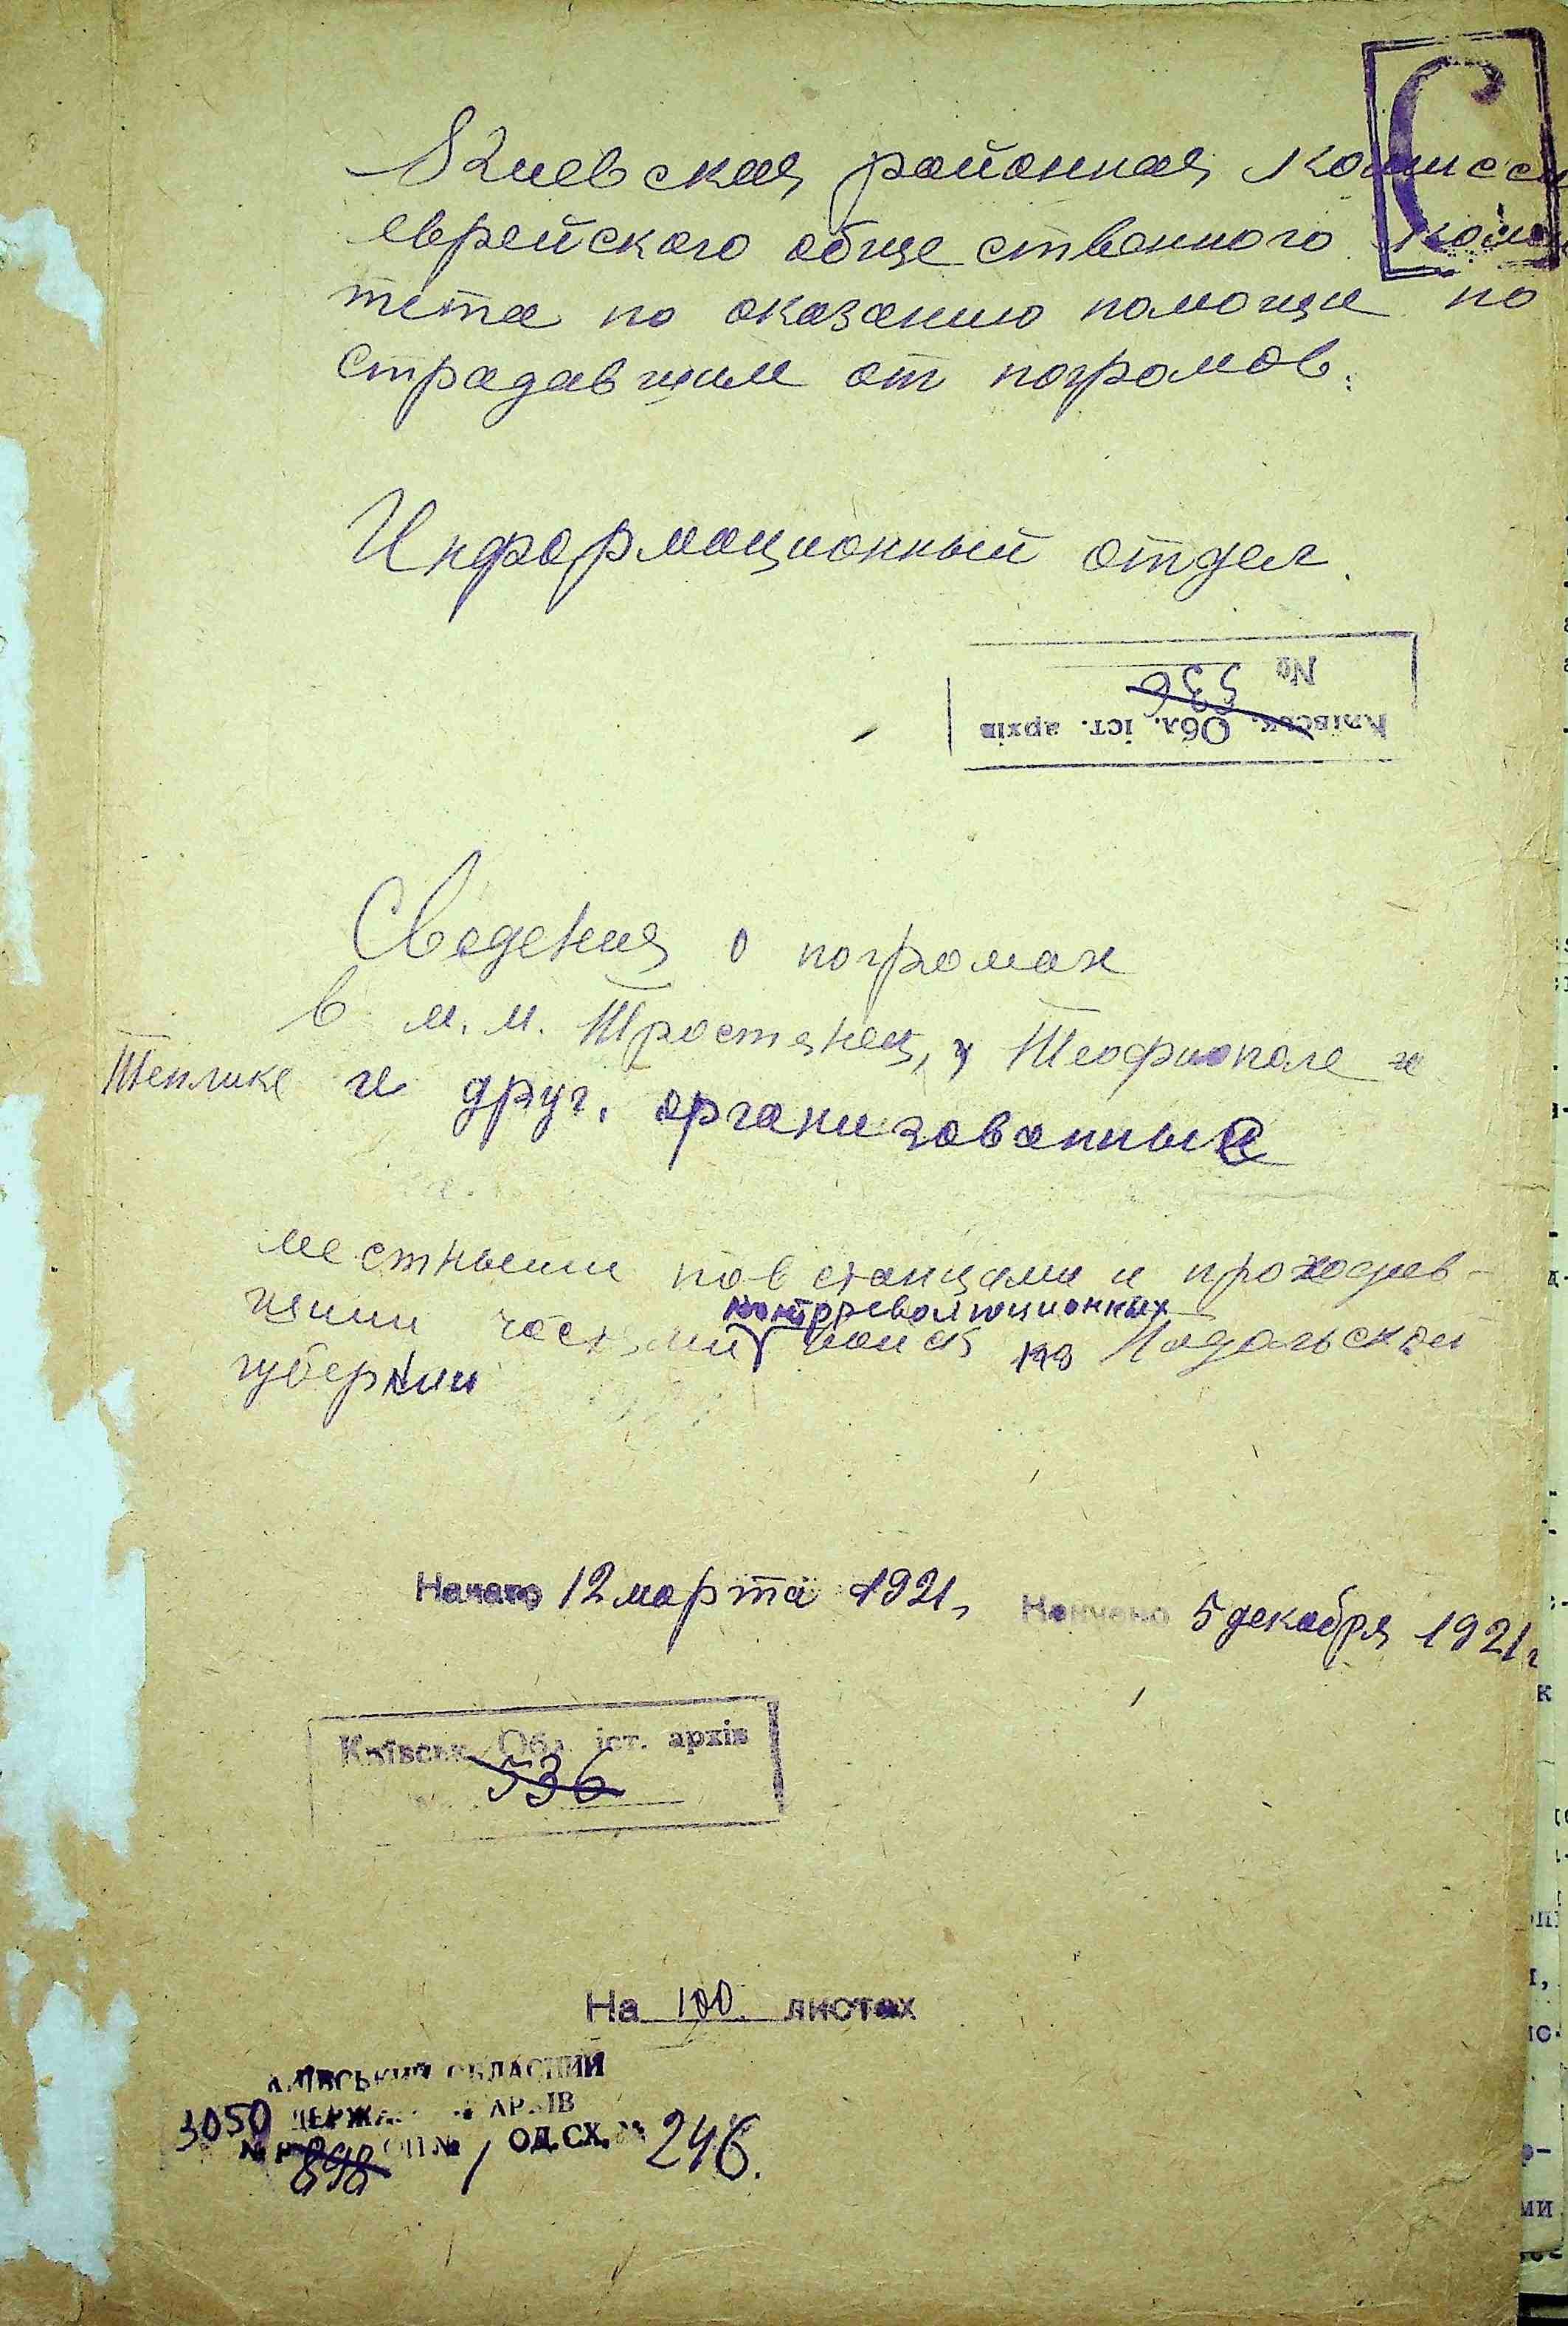 С
Киевская районная комисси
еврейского общественного коми
тета по оказанию помощи по
страдавшим от погромов.
Информационный отдел.
№ 536
Київськ. Обл. іст. архів
Сведения о погромах
в м. м. Тростянец, Теофиополе и
Теплике и друг. организованные
местными повстанцами и проходив-
контрреволюционных
шими частями войск по Подольской
губернии
Начато 12 марта 1921, Кончено 5 декабря 1921 г
Київськ. Обл. іст. архів
536
На 100 листах
КИЇВСЬКИЙ ОБЛАСНИЙ
3050 ДЕРЖ. АРХІВ
№ Ф 898 ОП № 1 ОД. СХ. № 246.